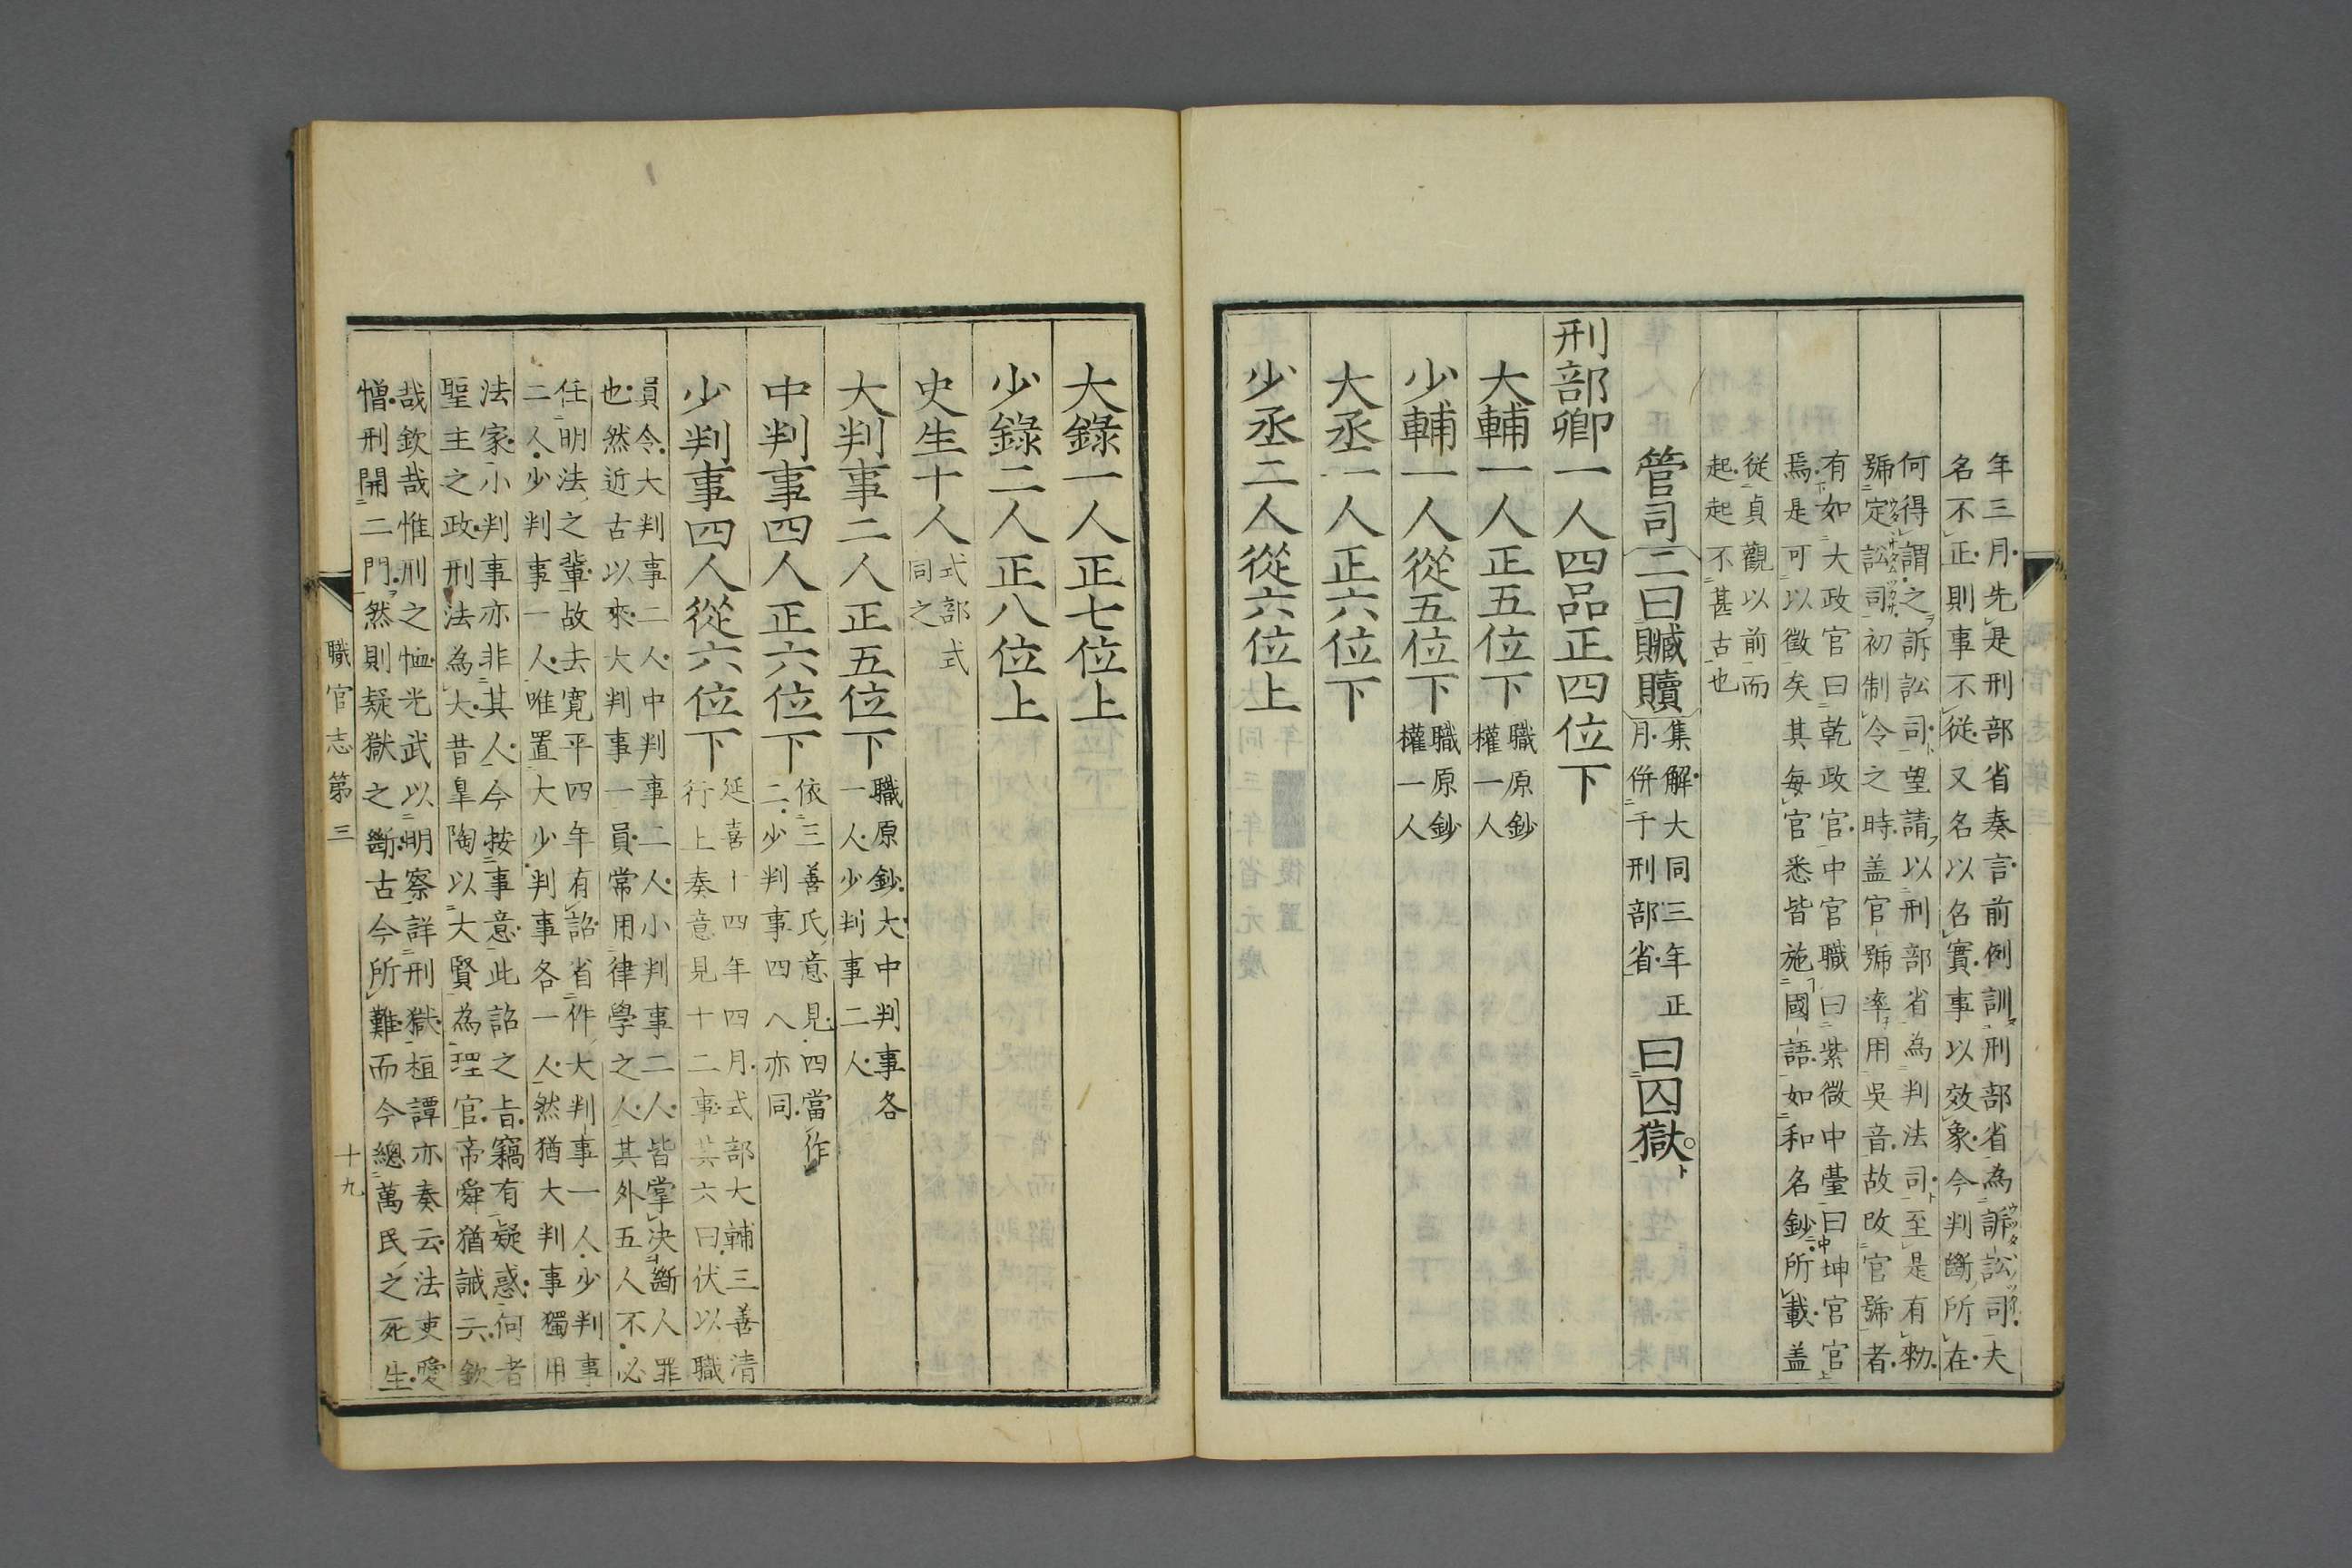 年三月先是刑部省奏言前例訓刑部省為訴訟司夫
名不正則事不從又名以名實事以效象今判斷所在
何得謂之訴訟司望請以刑部省為判法司至是有勑
號定訟司初制令之時盖官號率用吳音故改官號者
有如大政官曰乾政官中官職曰紫微中臺曰坤官官
焉是可以徵矣其每官悉皆施國語如和名鈔所載盖
從貞觀以前而
起起不甚古也
管司二曰贓贖集解大同三年正
月併于刑部省曰囚獄
刑部卿一人四品正四位下
大輔一人正五位下職原鈔
權一人
少輔一人從五位下職原鈔
權一人
大丞一人正六位下
少丞二人從六位上
大錄一人正七位上
少錄二人正八位上
史生十人式部式
同之
大判事二人正五位下職原鈔大中判事各
一人少判事二人
中判事四人正六位下依三善氏意見四當作
二少判事四人亦同
少判事四人從六位下延喜十四年四月式部大輔三善清
行上奏意見十二事其六曰伏以職
員令大判事二人中判事二人小判事二人皆掌決斷人罪
也然近古以來大判事一員常用律學之人其外五人不必
任明法之輩故去寛平四年有詔省件大判事一人少判事
二人少判事一人唯置大少判事各一人然猶大判事獨用
法家小判事亦非其人今按事意此詔之旨竊有疑惑何者
聖主之政刑法為大昔皐陶以大賢為理官帝舜猶誡云欽
哉欽哉惟刑之恤光武以明察詳刑獄桓譚亦奏云法吏愛
憎刑開二門然則疑獄之斷古今所難而今總萬民之死生
職官志第三
十九